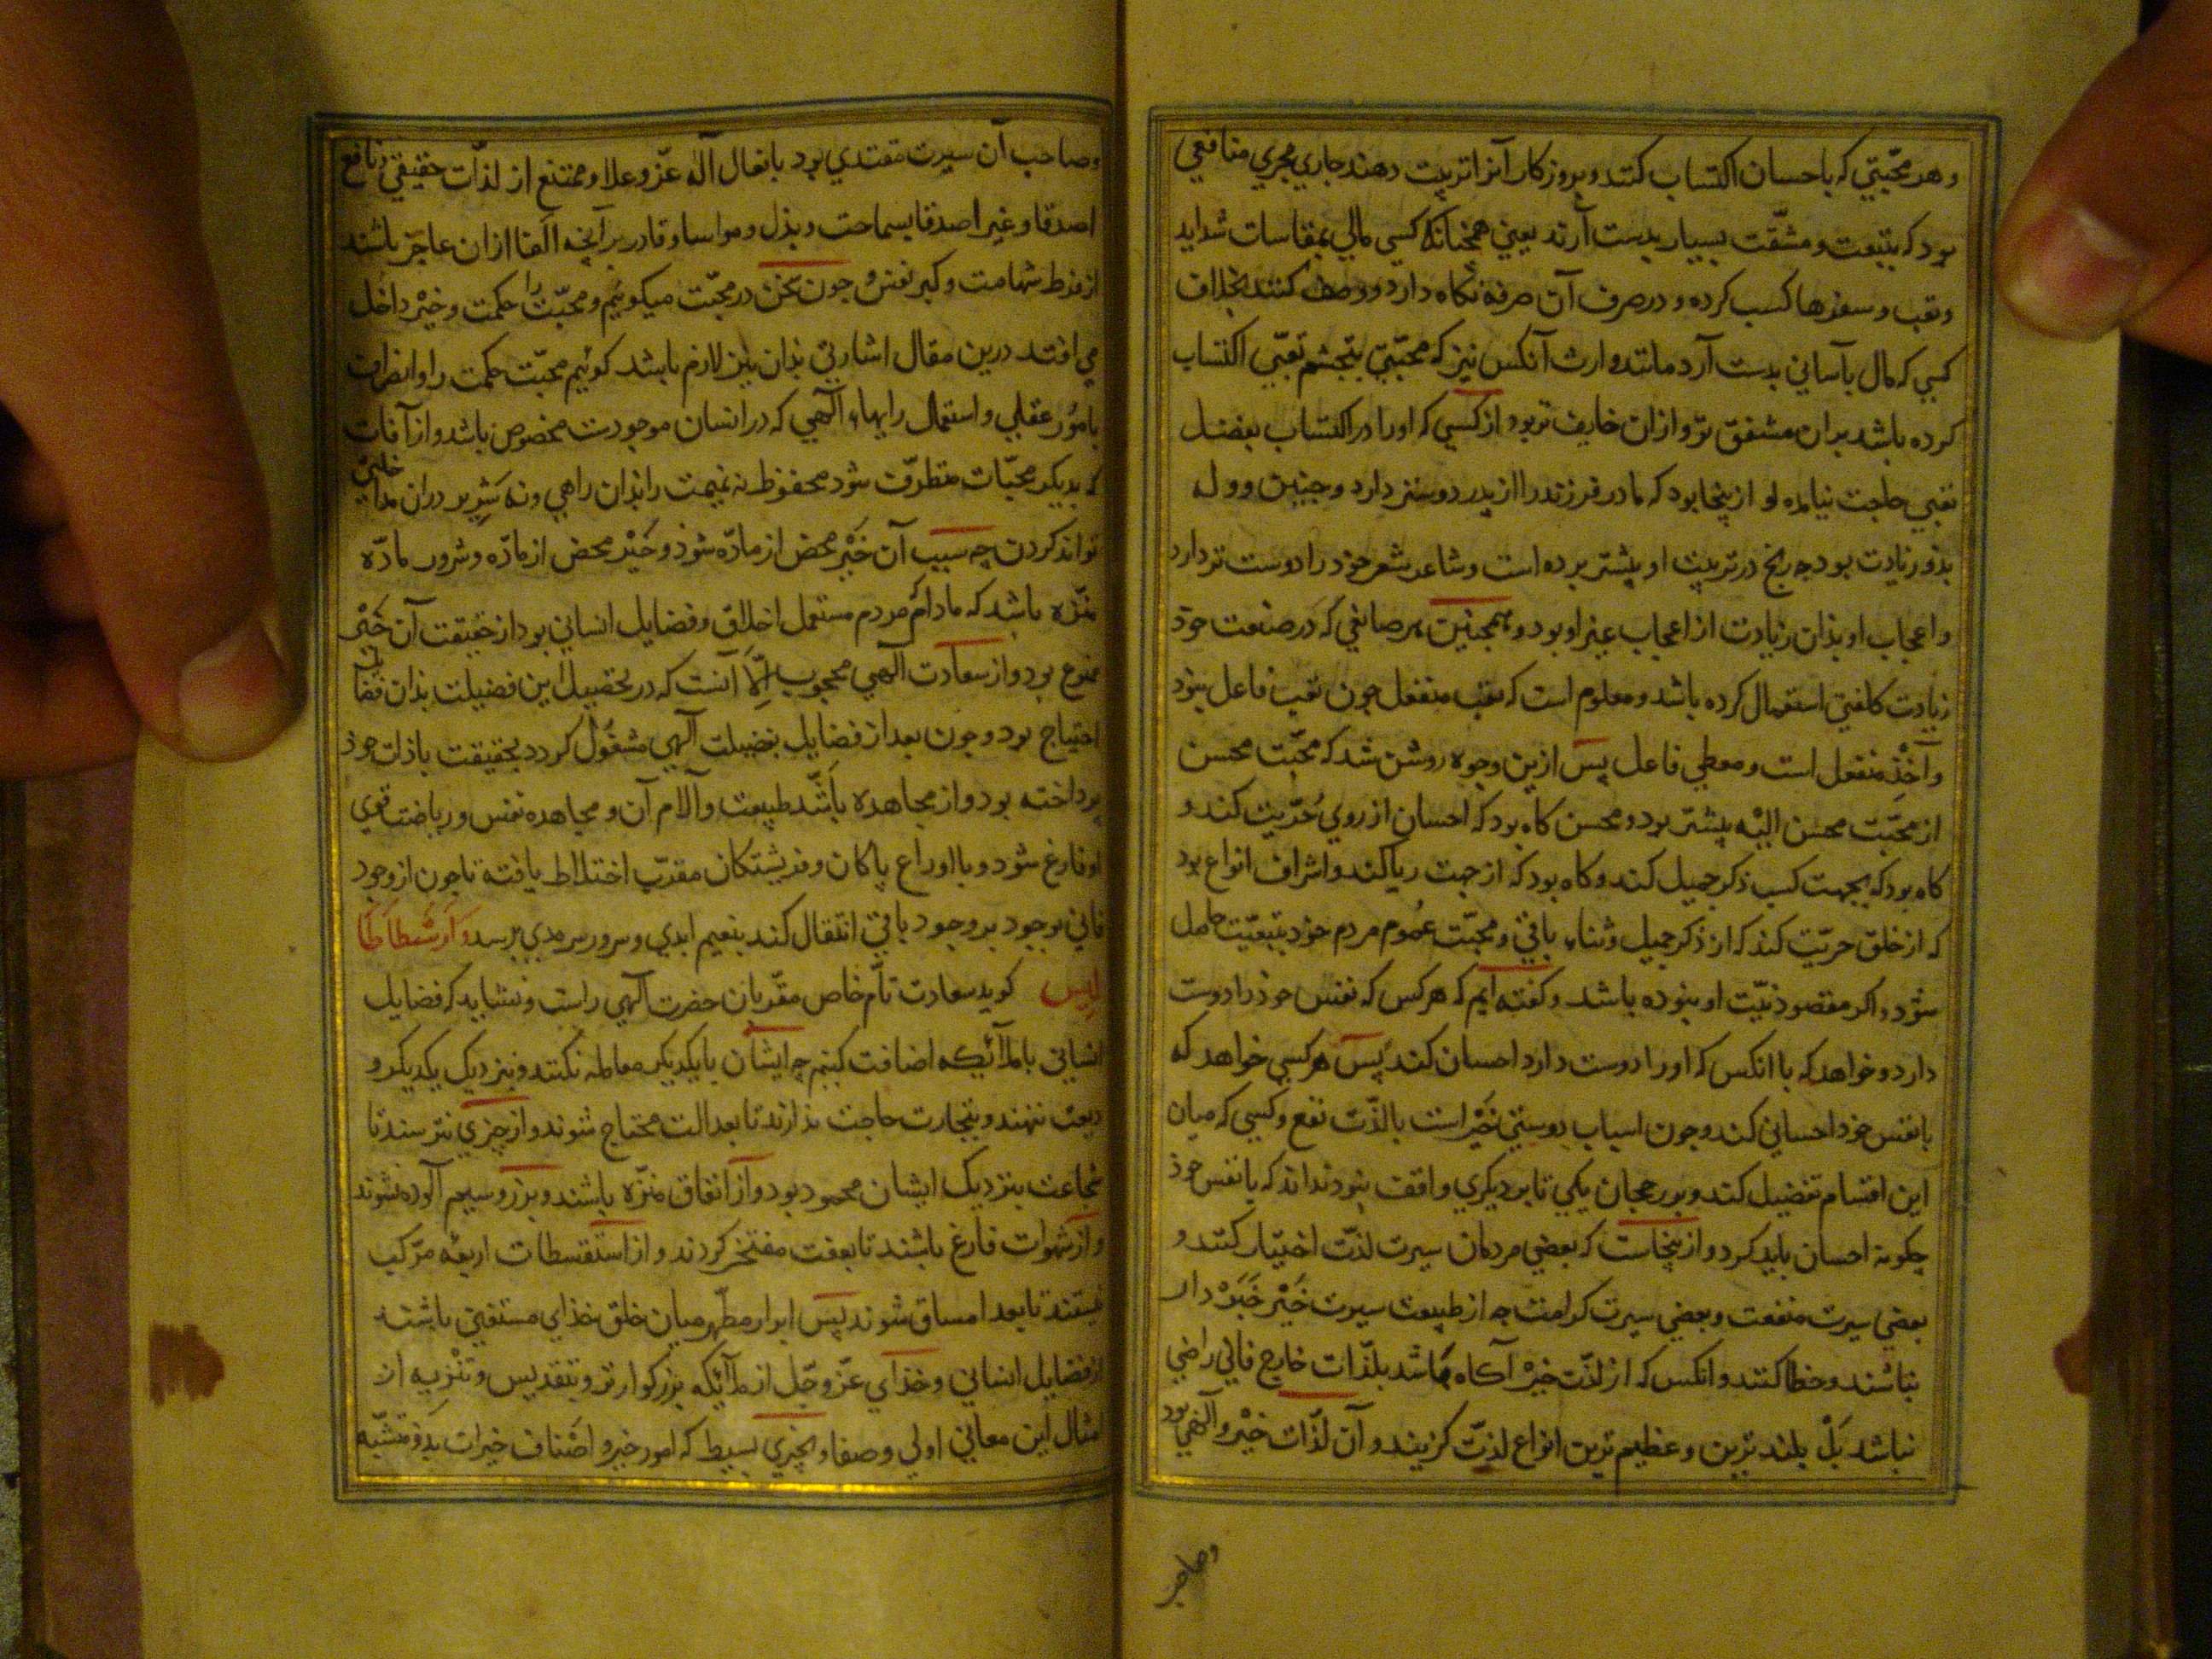 و هر محبّتي كه باحسان اكتساب كنند و بروزكار آنرا تربيت دهند جاري مجري منافعي
بود كه بتعب و مشقّت بسيار بدست آرند يعني همچنانكه كسي مالي بمقاسات شدايد
و تعب و سفرها كسب كرده و در صرف آن صرفه نكاه دارد و كنند بخلاف
كسي كه مال بآساني بدست آرد مانند وارث آنكس نيز كه محبّتي بتجشم تعبي اكتساب
كرده باشد بران مشفق تر و ازان خايف تر بود از كسي كه او را در اكتساب بفضل
تعبي حاجت نيايد و ازينجا بود كه مادر فرزند را از پدر دوستر دارد و حنين و وله
بذو زيادت بود چه رنج در تربيت او بيشتر برده است و شاعر شعر خود را دوست تر دارد
و اعجاب او بذان زيادت از اعجاب غير او بود و همچنين هر صانعي كه در صنعت خوذ
زيادت كلفتي استعمال كرده باشد و معلوم است كه تعب منفعل چون تعب فاعل نبود
و آخذ منفعل است و معطي فاعل پس ازين وجوه روشن شد كه محبّت محسن
از محبّت محسن اليه بيشتر بود و محسن كاه بود كه احسان از روي حُرّيت كند و
كاه بود كه بجهت كسب ذكر جميل كند و كاه بود كه از جهت ريا كند و اشراف انواع بود
كه از خلق حريّت كند كه از ذكر جميل و ثناء باقي و محبّت عُموم مردم خوذ بتبعيّت حاصل
شوذ و اكر مقصود نيّت او نبوده باشد و كفته ايم كه هر كس كه نفس خوذ را دوست
دارد و خواهد كه با انكس كه او را دوست دارد احسان كند پس هر كسي خواهد كه
با نفس خود احساني كند و چون اسباب دوستي خَيْر است يا لذّت نفع و كسي كه ميان
اين اقسام تفضيل كند و بر رجحان يكي تا بر ديكري واقف نبود نداند كه با نفس خوذ
چكونه احسان بايد كرد و ازينجاست كه بعضي مردمان سيرت لذّت اختيار كنند و
بعضي سيرت منفعت و بعضي سيرت كرامت چه از طبيعت سيرت خَيْر خَبَرْ دار
نباشند و خطا كنند و انكس كه از لذّت خيْر آكاه باشد بلذّات خارج فاني راضي
نباشد بَلْ بلند ترين و عظيم ترين انواع لذّت كزيند و آن لذّات خيْر و آلهي بود
و صاحب
و صاحب آن سيرت مقتدي بود بافعال آله عزّ و علا و ممتنع از لذّات حقيقي نافع
اصدقا و غير اصدقا بسماحت و بذل و مواسا و قادر بر آنچه اكفا ازان عاجز باشند
از فرط شهامت و كبر نفس و چون سخن در محبّت ميكوييم و محبّت حكمت و خيْر داخل
مي افتد درين مقال اشارتي بذان نيز لازم باشد كوئيم محبّت حكمت را و انصراف
بامُور عقلي و استعمال رايهاء آلهي كه در انسان موجودست مخصوص باشد و از آفات
كه بديكر محبّات متطرّق شود محفوظ نه نميمت را بذان راهي و نه شرير دران مداخلتي
تواند كردن چه سبب آن خَيْر محض از مادّه شوذ و خَيْر محض از مادّه و شرور مادّه
منزّه باشد كه مادام مردم مستعمل اخلاق و فضايل انساني بود از حقيقت آن خَيْر
ممنوع بود و از سعادت آلهي محجوب اِلّا آنست كه در تحصيل اين فضيلت بذان فضايل
احتياج بود و چون بعد از فضايل بفضيلت آلهي مشغُول كردد بحقيقت باذات خوذ
پرداخته بود و از مجاهده باشَد طبيعت و آلام آن و مجاهده نفس و رياضت قوي
او فارغ شوذ و با ارواح پاكان و فريشتكان مقرّب اختلاط يافته تا چون از وجود
فاني بوجود بر وجود باقي انتقال كند بنعيم ابدي و سرور سرمدي برسد و آرسْطاطا
ليس كويد سعادت تامّ خاص مقرّبان حضرت آلهي راست و نشايد كه فضايل
انساني با ملائكه اضافت كنيم چه ايشان با يكديكر معامله نكنند و بنزديك يكديكر و
ديعت ننهند و بتجارت حاجت ندارند تا بعدالت محتاج شوند و از چيزي نترسند تا
شجاعت بنزديك ايشان محمود بود و از انفاق منزّه باشند و بزر و سيم آلوده نشوند
و از شهوات فارغ باشند تا بعفت مفتخر كردند و از استقسطات اربعه مركّب
نيستند تا بغذا مساق شوند پس ابرار مطهّر ميان خلق خذاي مستغني باشند
از فضايل انساني و خذاي عزّ و جّل از ملائكه بزركوارتر و بتقديس و تنْزيه از
امثال اين معاني اولي و صفا و بچيزي بسيط كه امور خير و اصْناف خيرات بدو متشبّه